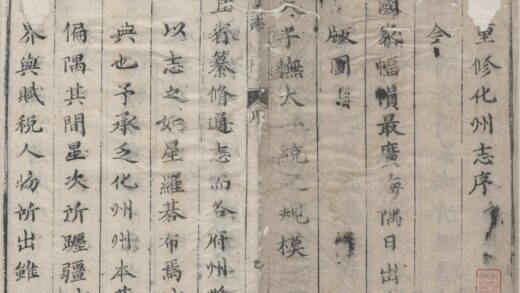 重修化州志序
今
國家幅幀最廣海隅日出
版圖
子撫大一統之規模
省纂脩通志而各府州
以志之如星羅碁布焉
典也予承乏化州州本
偏隅其間星次所躔疆
界與賦稅人物所出雖
序